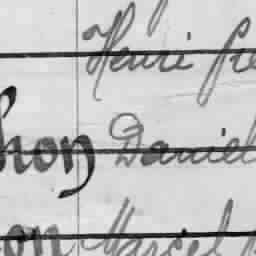 Henri
hon Daniel
on Marcel